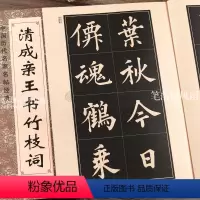 葉秋今日
僊魂鶴乘
清成亲王书竹枝词
粉象优品
正品保障